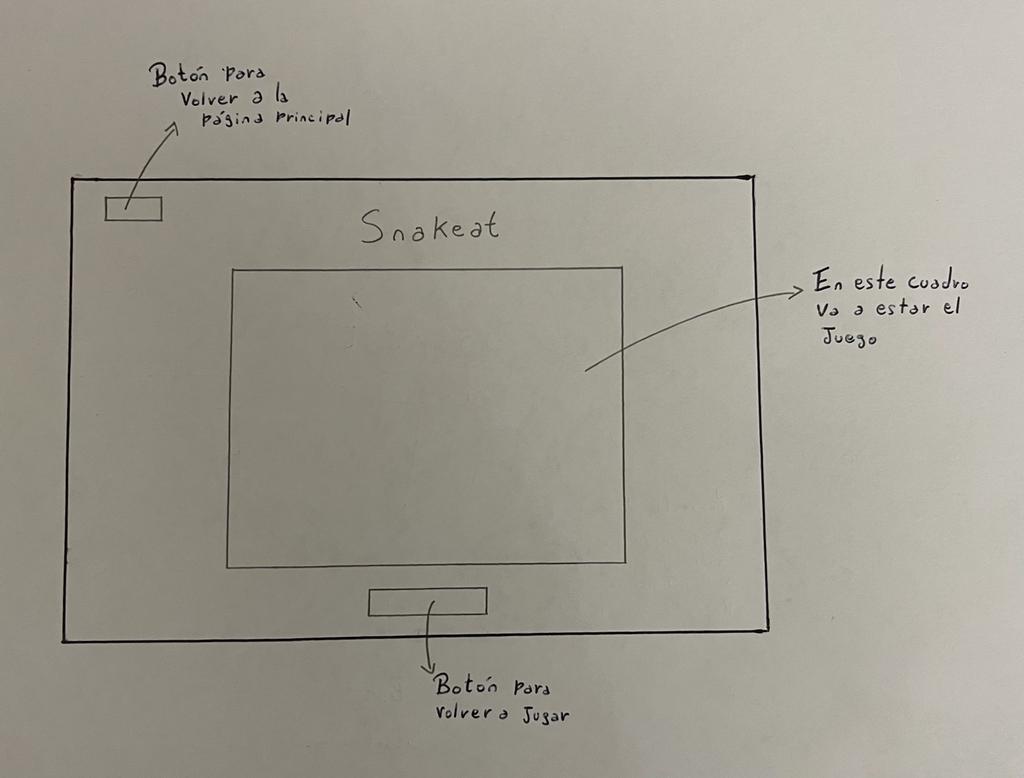 Botón para
Volver a la
página principal
Snakeat
En este cuadro
va a estar el
Juego
Botón para
volver a Jugar